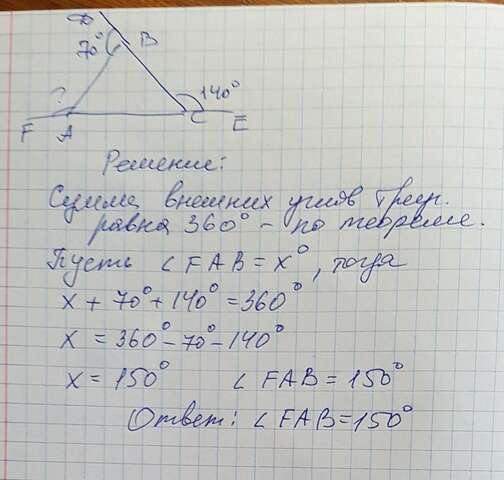 D
70° B
140°
?
F A C E
Решение:
Сумма внешних углов треуг.
равна 360° - по теореме.
Пусть ∠FAB = x°, тогда
x + 70° + 140° = 360°
x = 360° - 70° - 140°
x = 150° ∠FAB = 150°
Ответ: ∠FAB = 150°